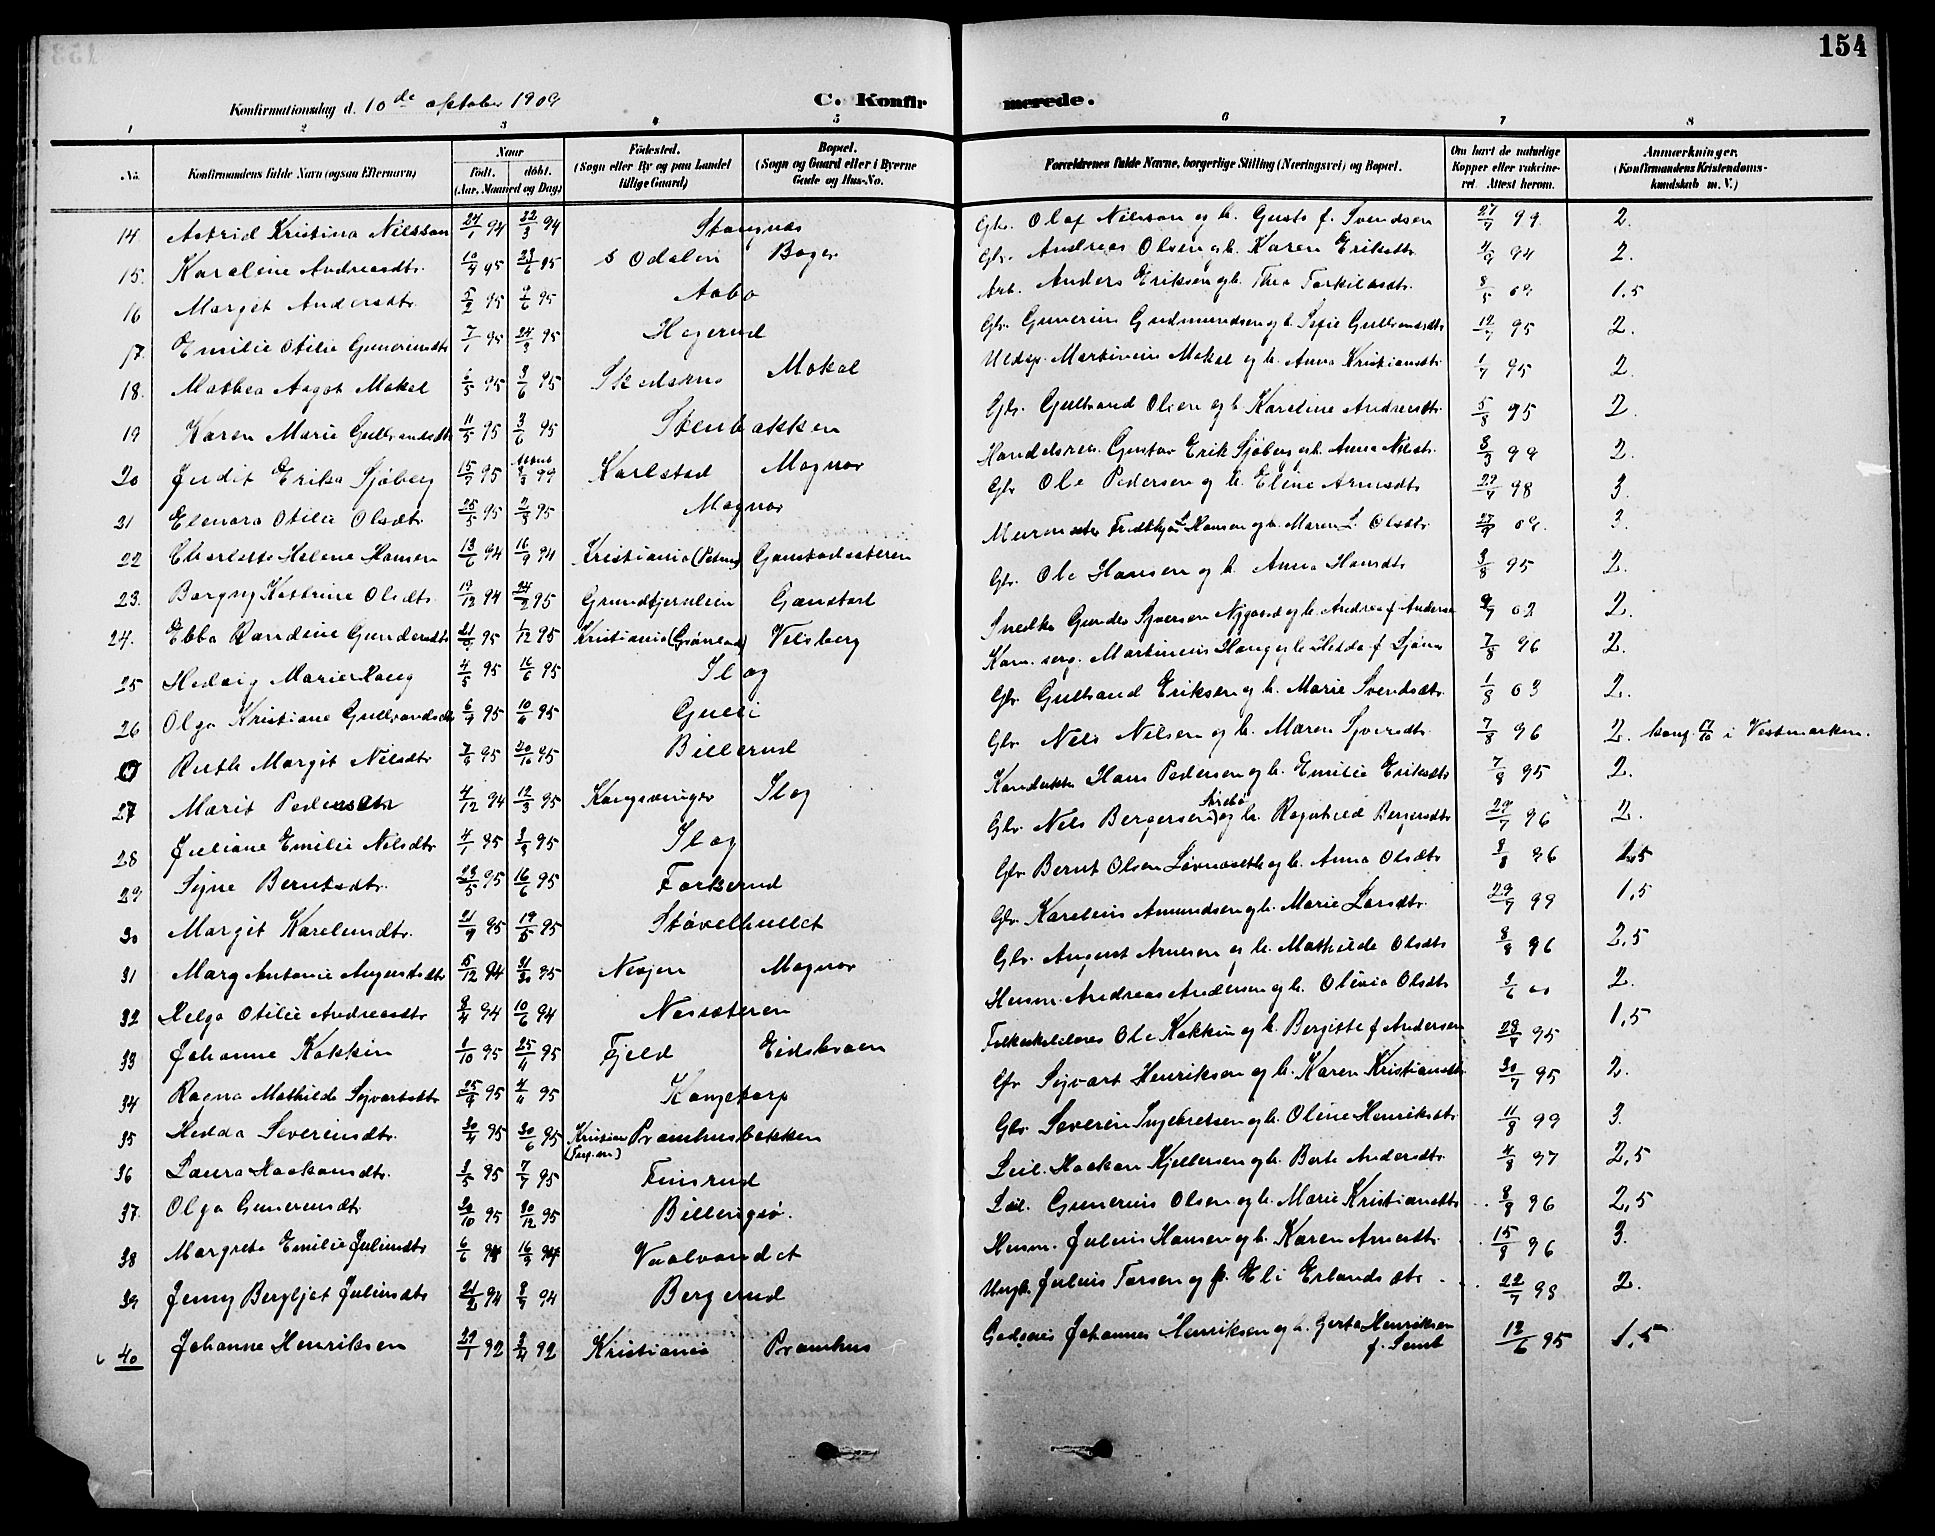 154
Konfirmationsdag d. 10de oktober 1909
C. Konfirmerede.
1 2 3 4 5 6 7 8
No.
Konfirmandens fulde Navn (ogsaa Efternavn)
Naar
Født. døbt.
(Aar, Maaned og Dag)
Fødested.
(Sogn eller By og paa Landet
tillige Gaard)
Bopæl.
(Sogn og Gaard eller i Byerne
Gade og Hus-No.
Forældrenes fulde Navne, borgerlige Stilling (Næringsvei) og Bopæl.
Om havt de naturlige
Kopper eller vakcine-
ret. Attest herom.
Anmærkninger.
(Konfirmandens Kristendoms-
kundskab m. V.)
14. Astrid Kristina Nilsson 27/1 94 22/3 94 Gbr. Olaf Nilsson og h. f. Svendsen 27/7 99 2.
15. Karoline Andreasdtr. 10/4 95 23/6 95 S Odalen Gbr. Andreas Olsen og h. Karen Eriksdtr. 94 2.
16 Margit Andersdtr. 5/2 95 95 Aabo Arb. Anders Eriksen og h. Thea Torkildsdtr. 8/5 09 1,5
17. Emilie Otilie Guneriusdtr 7/1 95 24/3 95 Hagerud Gbr. Gunerius Gudmundsen og h. Sofie Gulbrandsdtr 12/7 95 2.
18. Mathea Aagot Mokel 95 3/6 95 Mokel Martinius Mokel og h. Anna Kristiansdtr 1/7 95 2.
19 Karen Marie Gulbrandsdtr 11/5 95 3/6 95 Stenbakken Gbr. Gulbrand Olsen og h. Karoline Andreasdtr. 5/8 95 2.
20 Judit Erika Sjöberg 15/7 95 99 Karlstad Magnor Handelsrei. Gustav Erik Sjöberg og h. Anna Nilsdtr. 8/3 99 2.
21 Elenora Otilie Olsdtr. 25/5 95 95 Magnor Gbr Ole Pedersen og h. Eline Arnesdtr 98 3.
22 Charlotte Helene Hansen 13/6 94 16/9 94 Kristiania Gaustadsæteren Hansen og h. Maren L. Olsdtr. 09. 3.
23. Borgny Katrine Olsdtr. 19/12 94 24/2 95 Grundtjernlien Gaustad Gbr. Ole Hansen og h. Anna Hansdtr 3/8 95 2.
24. Ebba Randine Gundersdtr 95 1/12 95 Kristiania (Grønland) Velsberg Gunder Syversen Nygaard og h. Andrea f. Andersen 02 2
25 Hedvig Marie Haug 4/5 95 16/6 95 Skog Martinius Haug og h. Hilda f. 7/8 96 2.
26 Olga Kristiane Gulbrandsdtr 6/4 95 10/6 95 Gulli Gbr Gulbrand Eriksen og h. Marie Svendsdtr. 1/8 03 2.
Ruth Margit Nilsdtr 95 20/10 95 Billerud Gbr. Nils Nilsen og h. Maren Syversdtr. 7/8 96 2. i Vestmarken.
27 Marit Pedersdtr 4/12 94 12/3 95 Kongsvinger Skog Hans Pedersen og h. Emilie Eriksdtr 7/8 95 2.
28 Juliane Emilie Nilsdtr 4/1 95 3/3 95 Skog Gbr. Nils Bergersen og h. Ragnhild Bergersdtr 29/7 96 2.
29 Signe Berntsdtr. 23/5 95 16/6 95 Torkerud Gbr Bernt Olsen og h. Anna Olsdtr 8/8 96 1,5
30 Margit Kareliusdtr. 95 95 Støvelhullet Gbr. Karelius Amundsen og h. Marie Larsdtr. 29/7 99 1,5
31 Antonie Augustsdtr 5/12 94 95 Nesjen Magnor Gbr. August Arnesen og h. Mathilde Olsdtr 8/8 96 2,5
32 Helga Otilie Andreasdtr 8/4 94 10/6 94 Nessæteren Husm. Andreas Andersen og h. Olivia Olsdtr 3/6 00 2.
33 Johanne Kokkin 1/10 95 25/4 95 Fjeld Ole Kokkin og h. Bergitte f. Andersen 28/7 95 1,5
34 Ragna Mathilde Sigvartsdtr 95 95 Kongetorp Gbr Sigvart Henriksen og h. Karen Kristiansdtr 30/7 95 2.
35 Hedda Severinsdtr. 30/4 95 30/6 95 Pramhusbakken Gbr Severin Ingebretsen og h. Oline Henriksdtr. 11/8 99 3.
36 Laura Haakonsdtr. 3/5 95 7/7 95 Finsrud Leil. Haakon Kjellersen og h. Berte Andersdtr. 4/8 97 2,5
37. Olga Gunerusdtr. 30/10 95 30/12 95 Billingsø. Leil. Gunerius Olsen og h. Marie Kristiansdtr 8/8 96 2,5
38 Margrete Emilie Juliusdtr 6/6 94 16/9 94 Vaalvandet Husm. Julius Hansen og h. Karen Arnesdtr. 15/8 96 3.
39 Jenny Bergljot Juliusdtr 21/2 94 94 Bergerud Julius Torsen og h. Eli Erlandsdtr. 22/7 98 2.
40 Johanne Henriksen 29/1 92 3/4 92 Kristiania Pramhus Johannes Henriksen og h. Gerta Henriksen 12/6 95 1,5